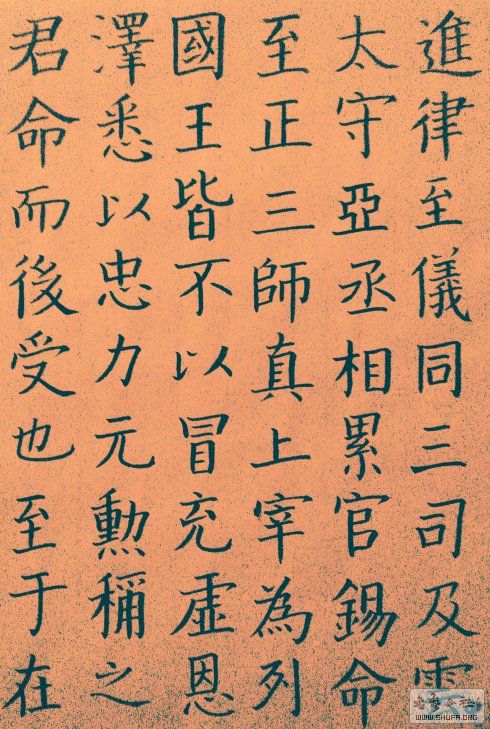 進律至儀同三司及
太守亞丞相累官錫命
至正三師真上宰為列
國王皆不以冒充虛恩
澤悉以忠力元勳稱之
君命而後受也至于在
WWW.SHUFA.ORG